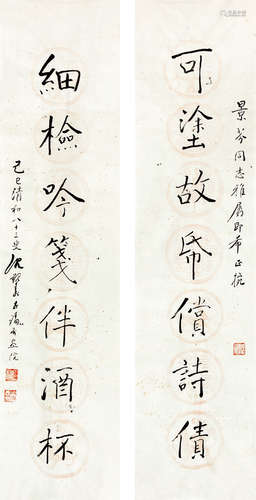 景芬同志雅屬即希正
可塗故帋償詩債
細檢吟箋伴酒杯
己巳清和八十三叟沈